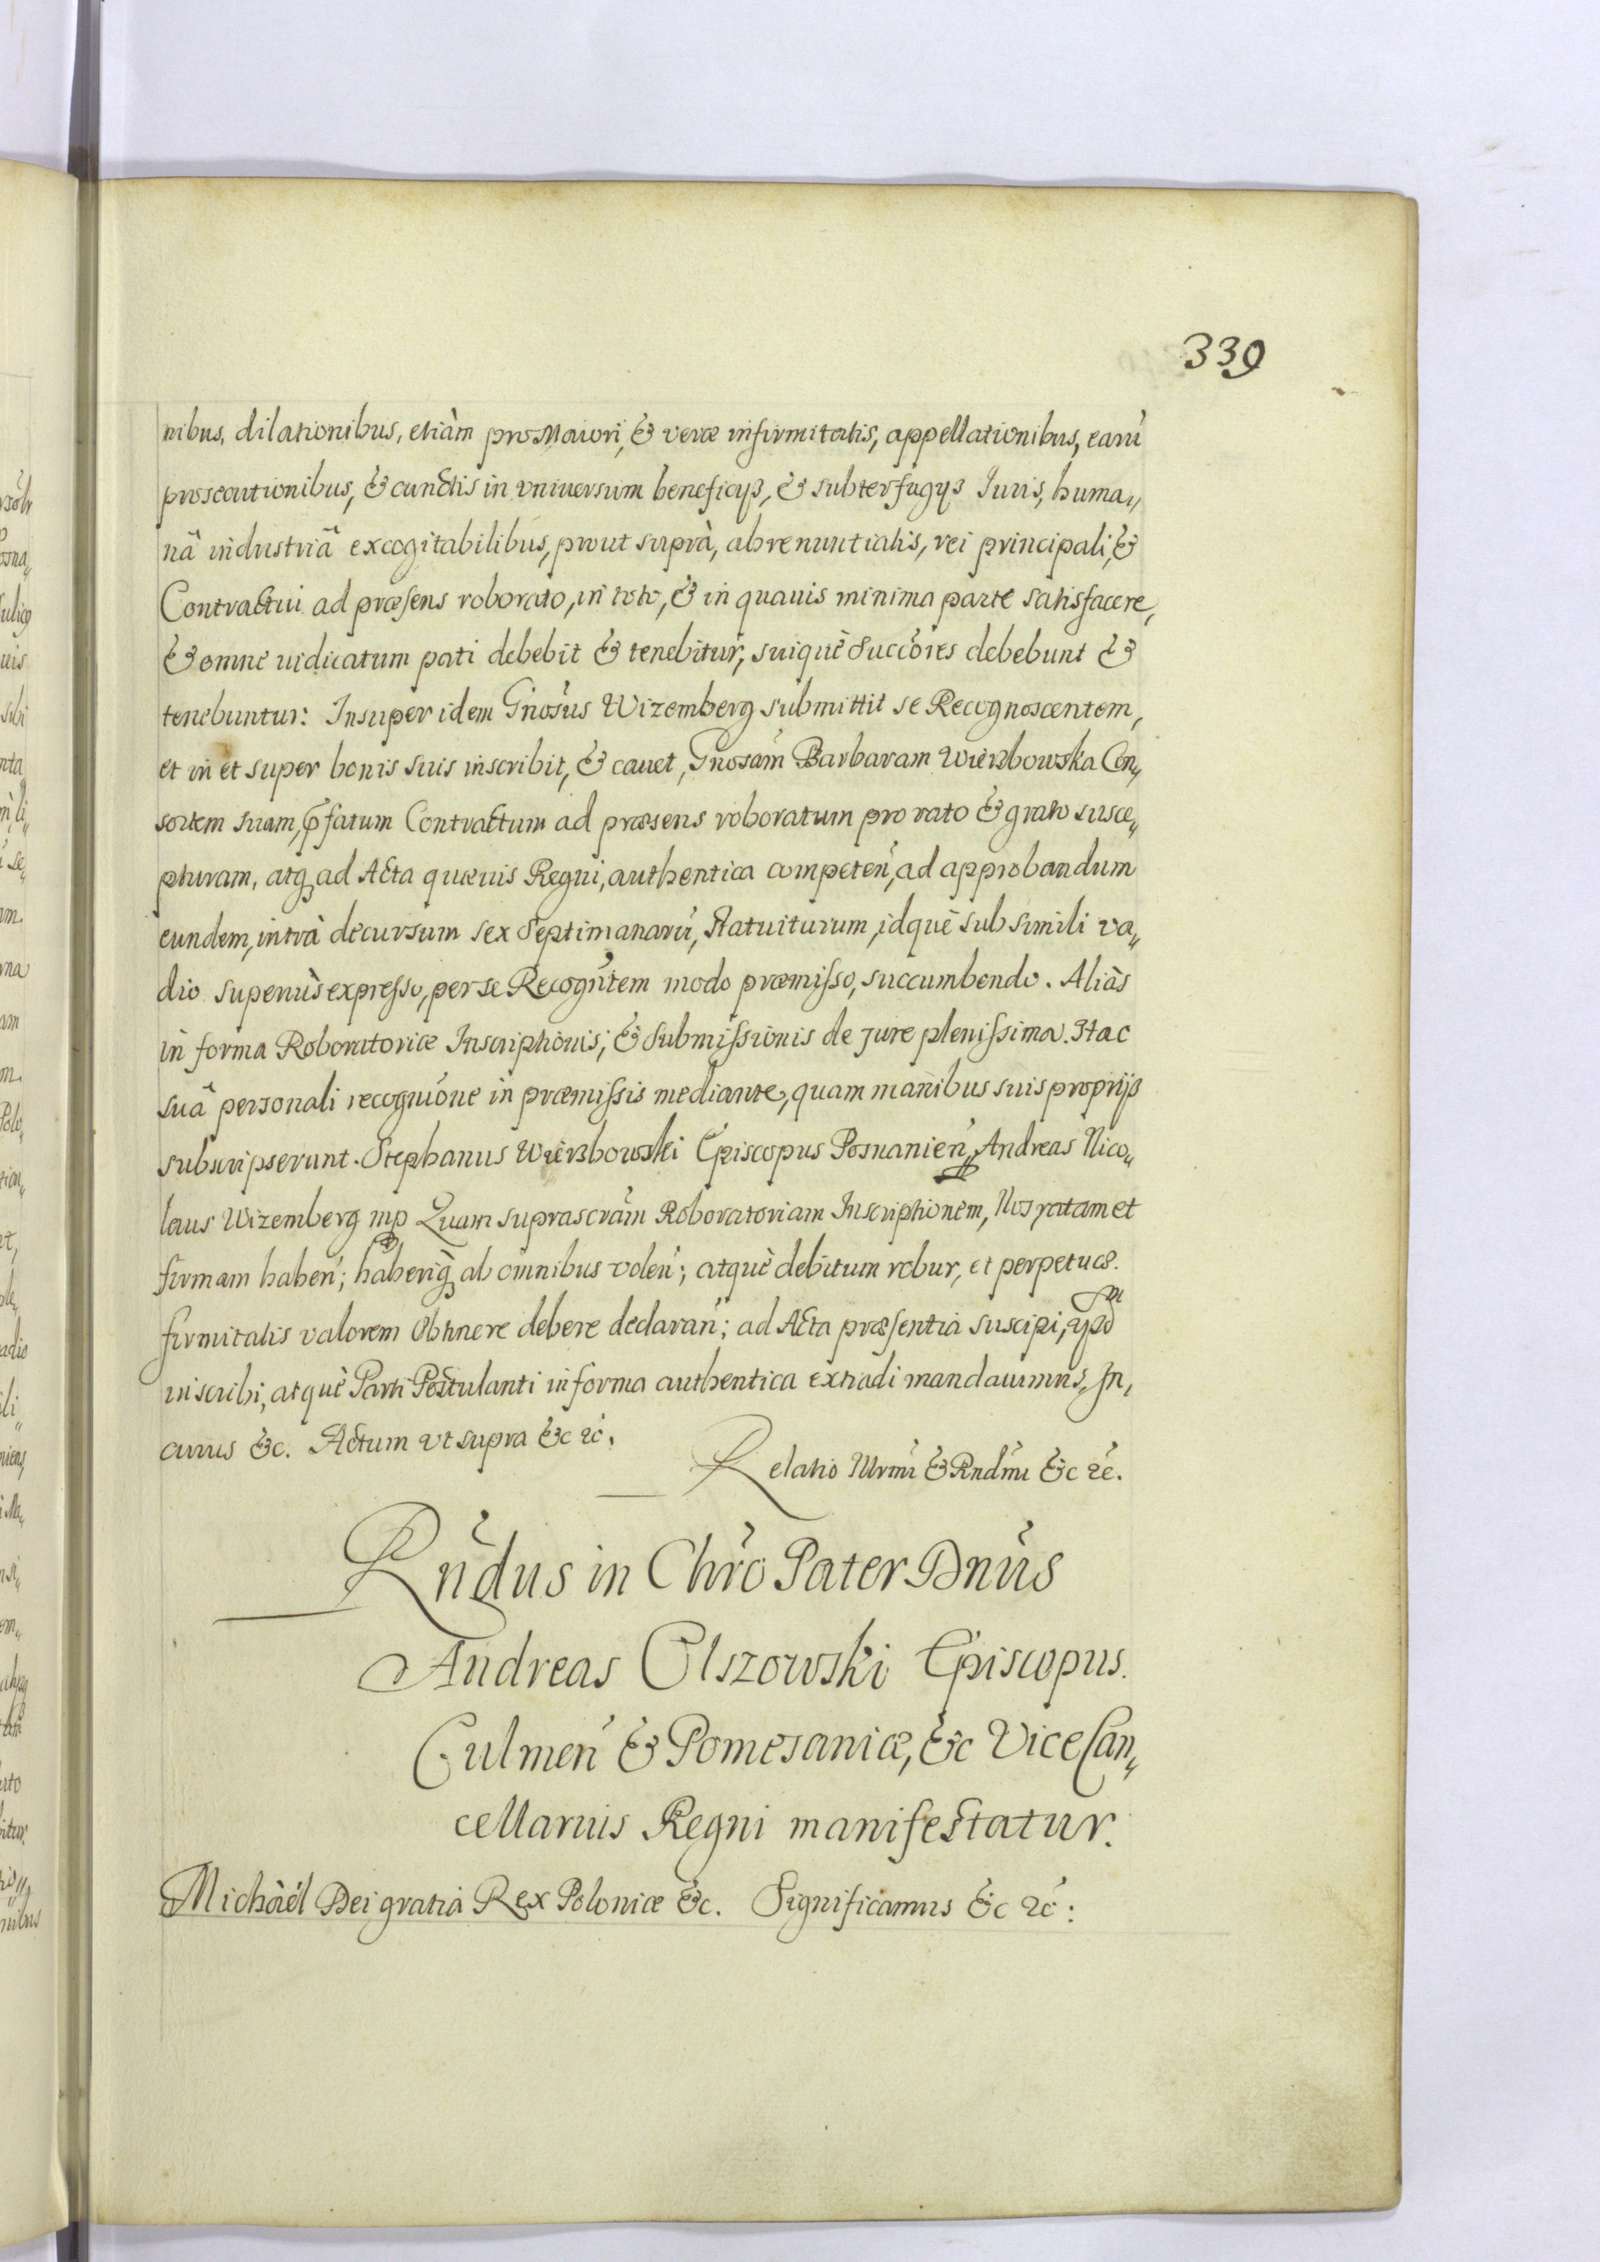 339
nibus, dilationibus, etiàm pro Maiori, & veræ infirmitatis, appellationibus, earú
prosecutionibus, & cunctis in vniversum beneficyß, & subterfugyß Iuris, huma„
nâ industriâ excogitabilibus, prout suprà, abrenuntiatis, rei principali, &
Contractui ad præsens roborato, in toto, & in quauis minima parte satisfacere,
& omne iudicatum pati debebit & tenebitur, suiquè Succóres debebunt &
tenebuntur: Insuper idem Gnosús Wizemberg submittit se Recognoscentem,
et in et super bonis suis inscribit, & cauet, Gnosám Barbaram Wierzbowska Con„
sortem suam, p̃fatum Contractum ad præsens roboratum pro rato & grato susce„
pturam, atq; ad Acta quævis Regni, authentica competeń, ad approbandum
eundem, intrà decursum sex Septimanarú, statuiturum, idquè sub simili va„
dio superiùs expresso, per se Recogńtem modo præmisso, succumbendo. Aliàs
in forma Roboratoriæ Inscriptionis, & Submissionis de jure plenissima. Hac
suâ personali recognióne in præmissis mediante, quam manibus suis proprijß
subscripserunt. Stephanus Wierzbowski Episcopus Posnanień, Andreas Nico„
laus Wizemberg mp Quam suprascrám Roboratoriam Inscriptionem, Nos ratam et
firmam habeń; haberiq; ab omnibus voleń; atquè debitum robur, et perpetuæ
firmitatis valorem obtinere debere declarań; ad Acta præsentia suscipi, ypõ
inscribi, atquè Parti Postulanti in forma authentica extradi mandauimus. In„
cuius &c. Actum vt supra &c ꝛc.
Relatio Illrmi & Rndmi &c ꝛc.
Rńdus in Chrõ Pater Dnús
Andreas Olszowski Episcopus
Culmeń & Pomesaniæ, &c ViceCan„
cellarius Regni manifestatur.
Michàél Dei gratiâ Rex Poloniæ &c. Significamus &c ꝛc: